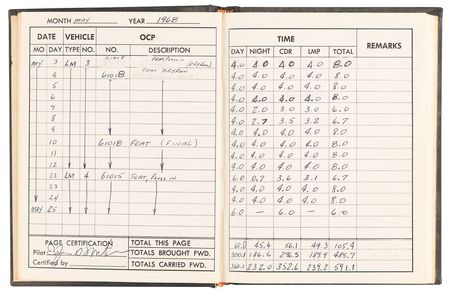 MONTH MAY YEAR 1968
DATE VEHICLE OCP
MO. DAY TYPE NO. NO. DESCRIPTION
MAY 3 LM 3 61018
4 61018 FEAT DRYRUN
5
6
7
8
9
10 61018 FEAT (FINAL)
11
12
22 LM 4 61015 FEAT, PLUGS IN
23
24
MAY 25
PAGE CERTIFICATION TOTAL THIS PAGE
Pilot TOTALS BROUGHT FWD.
Certified by TOTALS CARRIED FWD.
TIME REMARKS
DAY NIGHT CDR LMP TOTAL
4.0 4.0 4.0 4.0 8.0
4.0 4.0 4.0 4.0 8.0
4.0 4.0 4.0 4.0 8.0
4.0 4.0 4.0 4.0 8.0
4.0 2.0 3.0 3.0 6.0
4.0 2.7 3.5 3.2 6.7
4.0 4.0 4.0 4.0 8.0
4.0 4.0 4.0 4.0 8.0
4.0 4.0 4.0 4.0 8.0
4.0 4.0 4.0 4.0 8.0
6.0 0.7 3.6 3.1 6.7
4.0 4.0 4.0 4.0 8.0
4.0 4.0 4.0 4.0 8.0
6.0 — 6.0 — 6.0
60.0 45.4 56.1 49.3 105.4
300.1 186.6 296.5 189.9 485.7
360.1 232.0 352.6 239.2 591.1